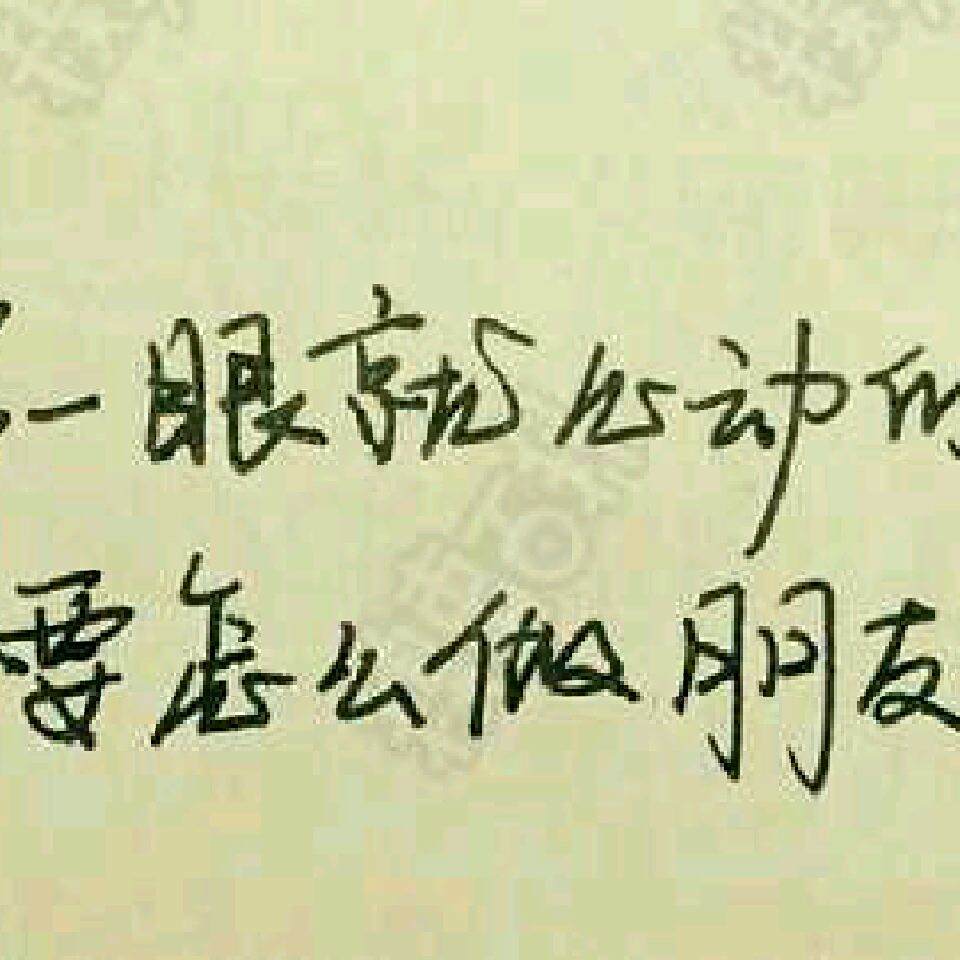 一眼就心动的
要怎么做朋友